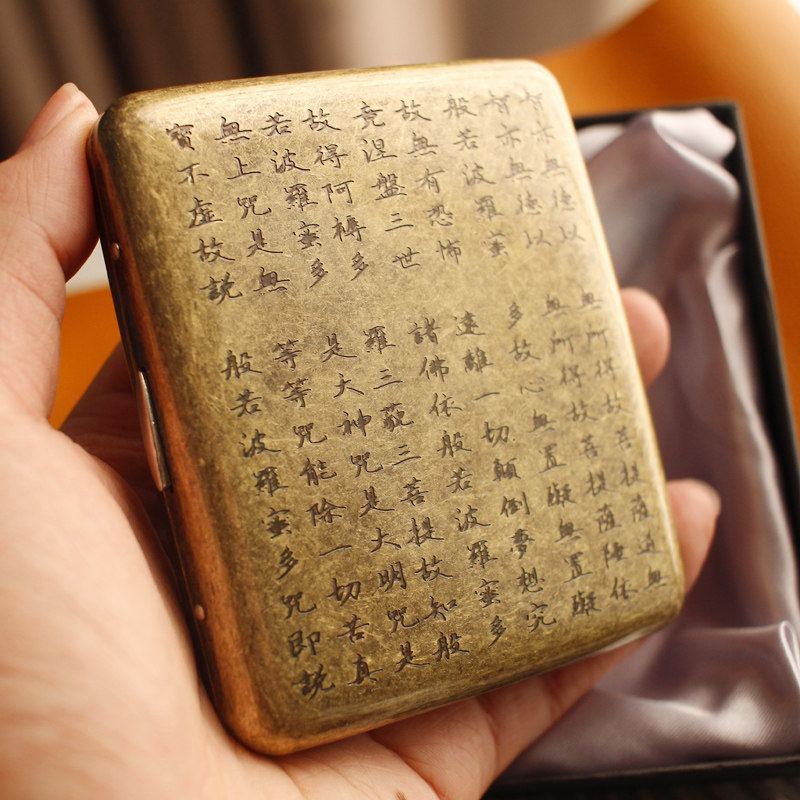 智亦無德以無所得故菩提薩道無
智亦無德以無所得故菩提薩陲依
般若波羅蜜多故心無罣礙無罣礙
故無有恐怖遠離一切顛倒夢想究
竟涅盤三世諸佛依般若波羅蜜多
故得阿褥多羅三藐三菩提故知般
若波羅蜜多是大神咒是大明咒是
無上咒是無等等咒能除一切苦真
寶不虛故說般若波羅蜜多咒即說